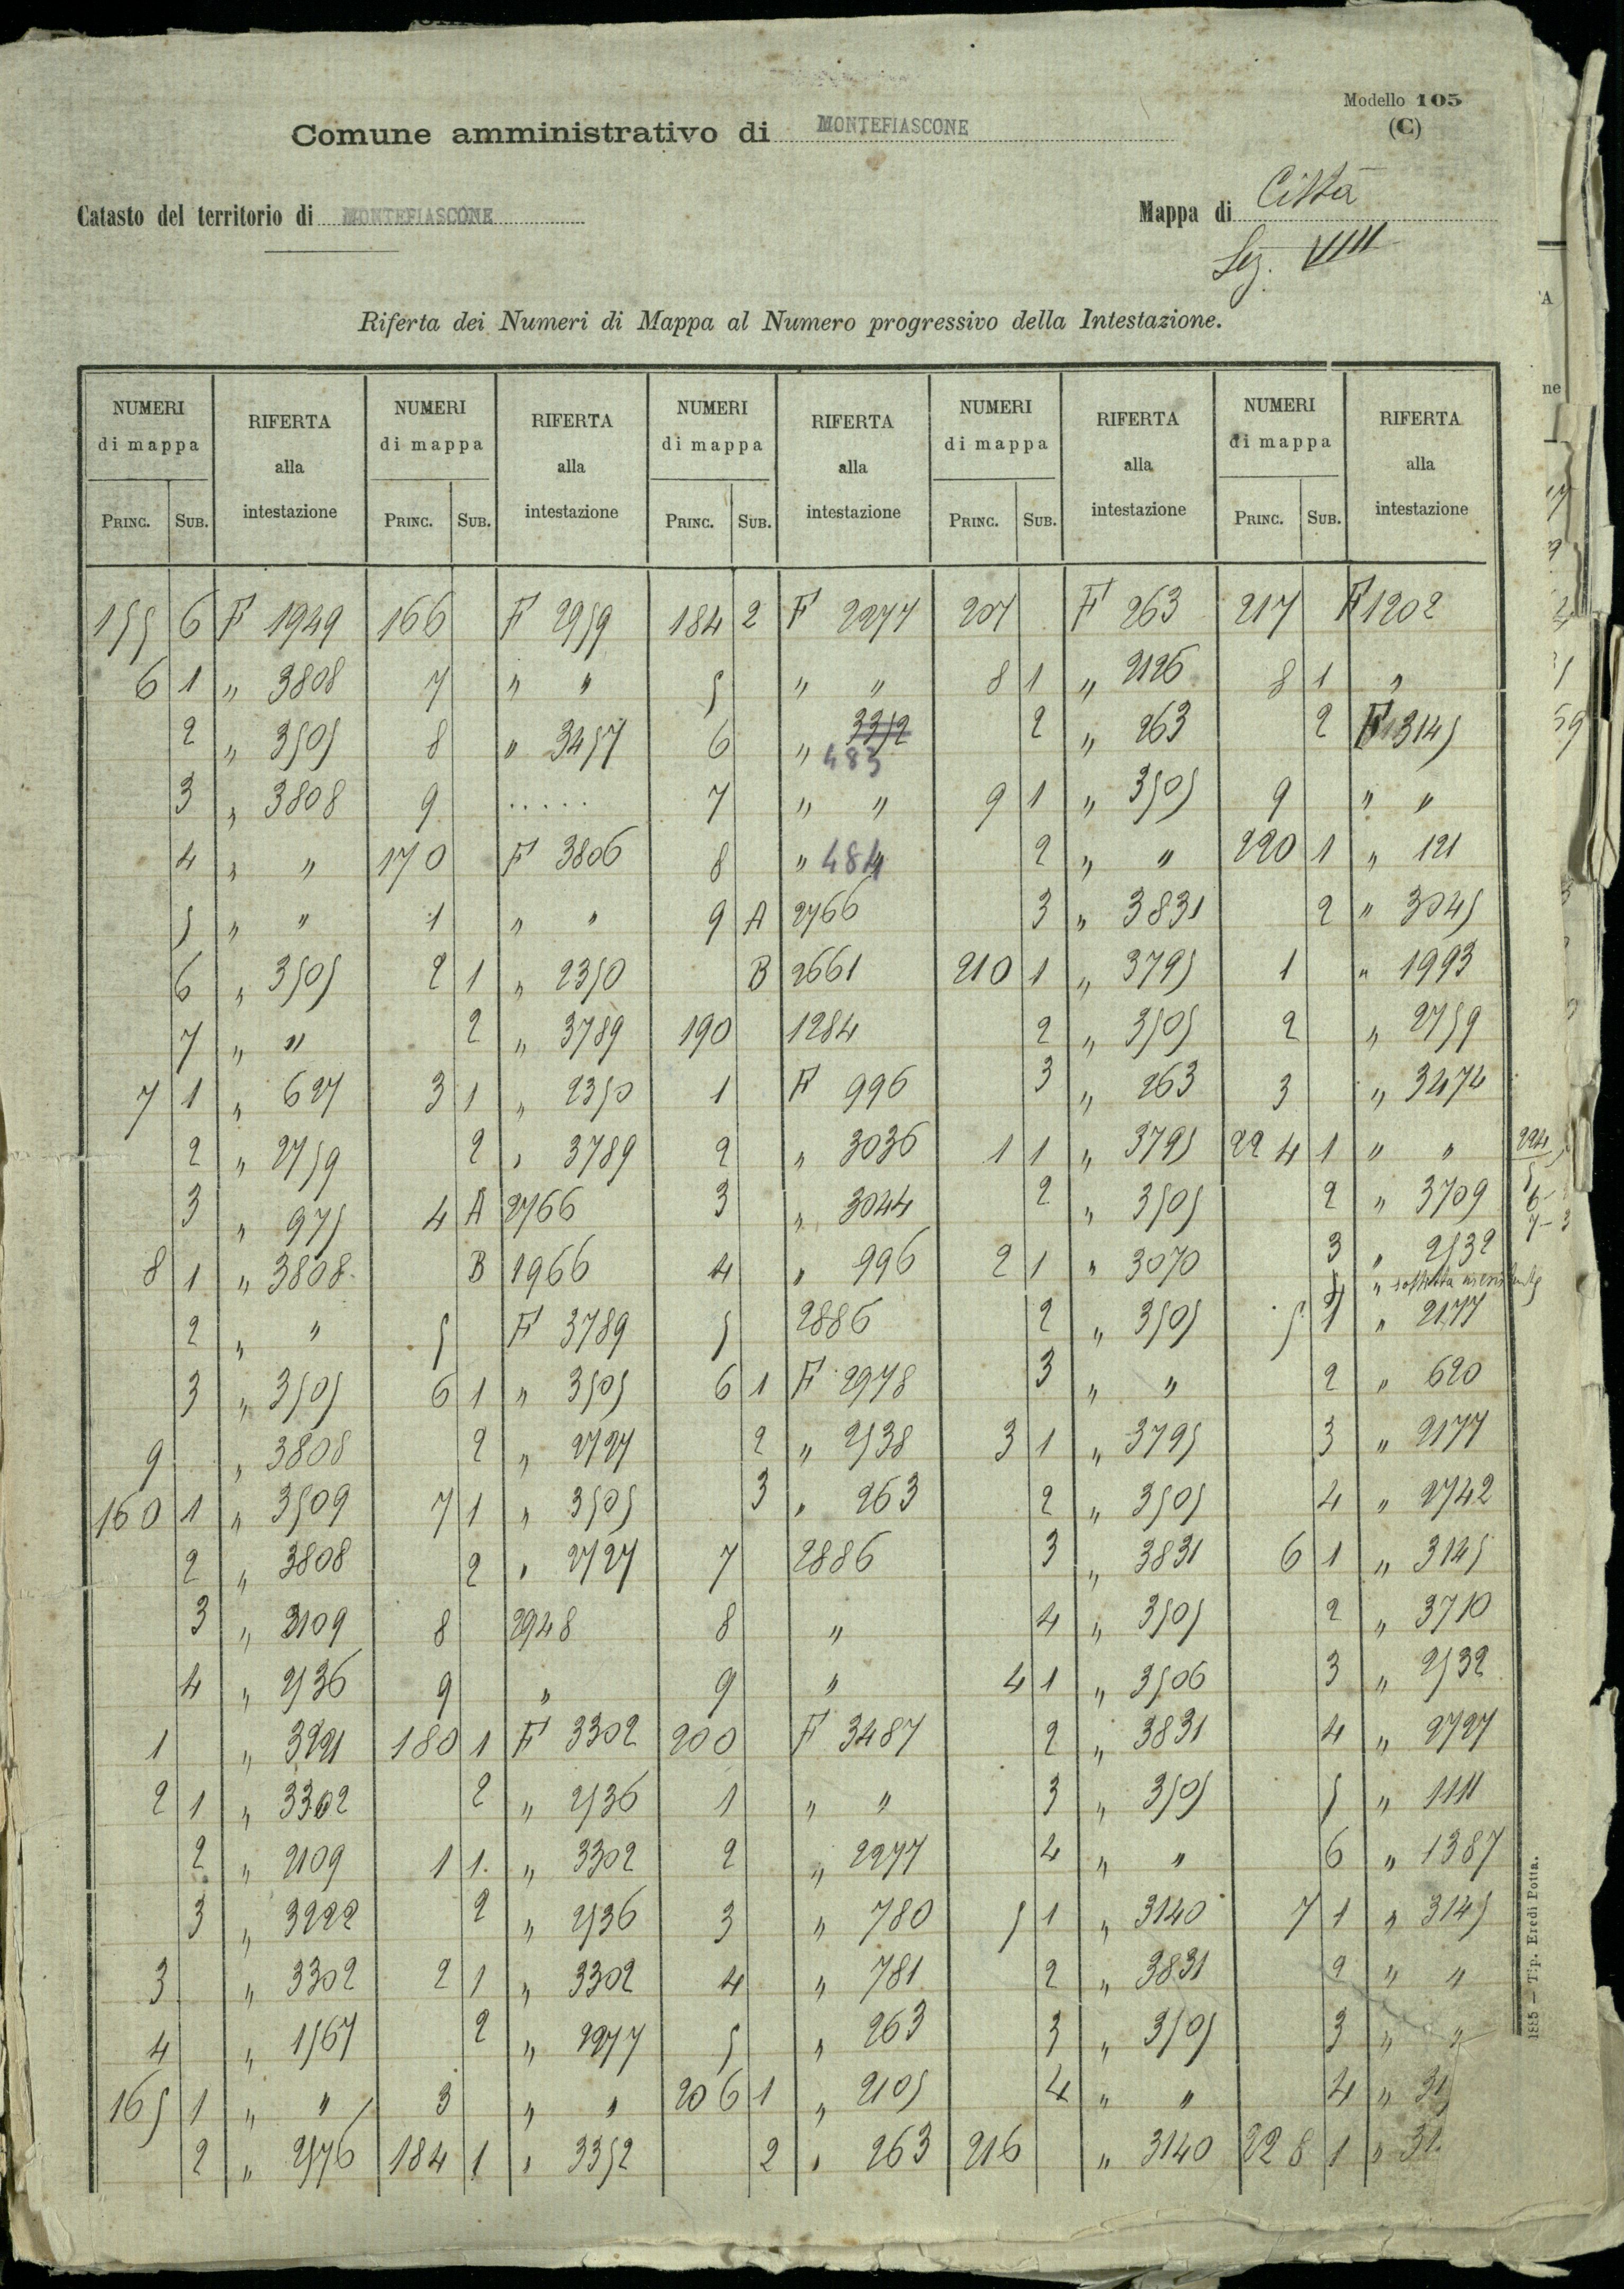 Modello 105
(C)
Comune amministrativo di MONTEFIASCONE
Catasto del territorio di MONTEFIASCONE
Mappa di Città
Sez. VIII
Riferta dei Numeri di Mappa al Numero progressivo della Intestazione.
NUMERI di mappa RIFERTA alla intestazione NUMERI di mappa RIFERTA alla intestazione NUMERI di mappa RIFERTA alla intestazione NUMERI di mappa RIFERTA alla intestazione NUMERI di mappa RIFERTA alla intestazione
PRINC. SUB. PRINC. SUB. PRINC. SUB. PRINC. SUB. PRINC. SUB.
155 6 F 1949 166 F 2959 184 2 F 2277 207 F 263 217 F 1202
6 1 " 3808 7 " " 5 " " 8 1 " 2126 8 1 "
2 " 3505 8 " 3457 6 " 3352 483 2 " 263 2 F 3145
3 " 3808 9 ..... 7 " " 9 1 " 3505 9 " "
4 " " 170 F 3806 8 " 484 2 " " 220 1 " 121
5 " " 1 " " 9 A 2766 3 " 3831 2 " 3045
6 " 3505 2 1 " 2350 B 2661 210 1 " 3795 1 " 1993
7 " " 2 " 3789 190 1284 2 " 3505 2 " 2759
7 1 " 627 3 1 " 2350 1 F 996 3 " 263 3 " 3474
2 " 2759 2 " 3789 2 " 3036 1 1 " 3795 224 1 " "
3 " 975 4 A 2766 3 " 3044 2 " 3505 2 " 3709
8 1 " 3808 B 1966 4 " 996 2 1 " 3070 3 " 2532
2 " " 5 F 3789 5 2886 2 " 3505 5 1 " 2177
3 " 3505 6 1 " 3505 6 1 F 2978 3 " " 2 " 620
9 " 3808 2 " 2727 2 " 2538 3 1 " 3795 3 " 2177
160 1 " 3509 7 1 " 3505 3 " 263 2 " 3505 4 " 2742
2 " 3808 2 " 2727 7 2886 3 " 3831 6 1 " 3145
3 " 2109 8 2948 8 " 4 " 3505 2 " 3710
4 " 2536 9 " 9 " 4 1 " 3506 3 " 2532
1 " 3221 180 1 F 3302 200 F 3487 2 " 3831 4 " 2727
2 1 " 3302 2 " 2536 1 " " 3 " 3505 5 " 1111
2 " 2109 1 1 " 3302 2 " 2277 4 " " 6 " 1387
3 " 3222 2 " 2536 3 " 780 5 1 " 3140 7 1 " 3145
3 " 3302 2 1 " 3302 4 " 781 2 " 3831 2 " "
4 " 1567 2 " 2277 5 " 263 3 " 3505 3 " "
165 1 " " 3 " " 206 1 " 2105 4 " " 4 "
2 " 2576 184 1 " 3352 2 " 263 216 " 3140 228 1 "
1885 — Tip. Eredi Botta.